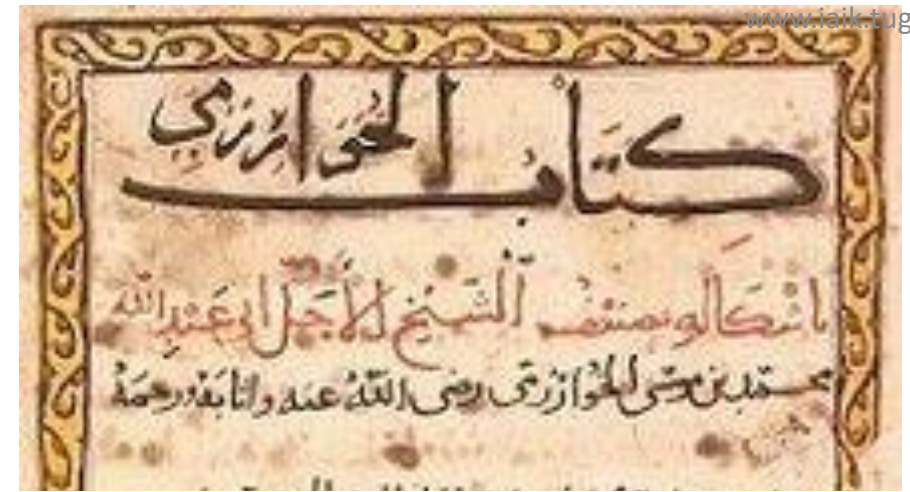 www.iaik.tug
كتاب الخوارزمي
باشكاله وصنف الشيخ الأجل ابي عبد الله
محمد بن موسى الخوارزمي رضي الله عنه واثابه ورحمة